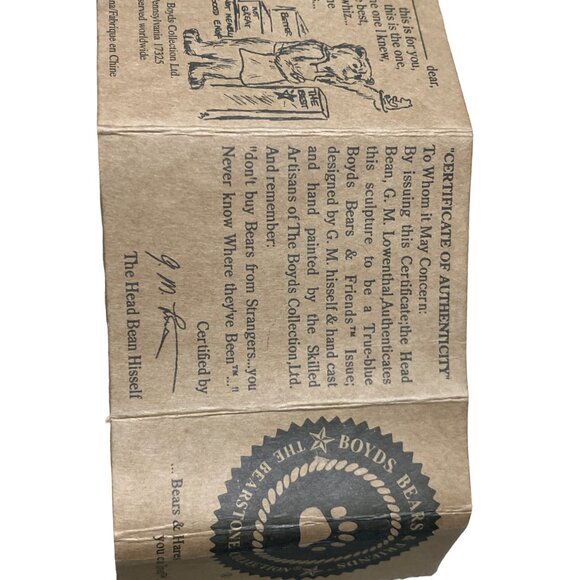 dear,
this is for you,
this is the one,
e one I knew,
e best,
whiz...
THE
BEST
Boyds Collection Ltd.
Pennsylvania 17325
served worldwide
ina/Fabrique en Chine
"CERTIFICATE OF AUTHENTICITY"
To Whom it May Concern:
By issuing this Certificate;the Head
Bean, G. M. Lowenthal,Authenticates
this sculpture to be a True-blue
Boyds Bears & Friends™ Issue;
designed by G. M. hisself & hand cast
and hand painted by the Skilled
Artisans of The Boyds Collection,Ltd.
And remember:
"don't buy Bears from Strangers...you
Never know Where they've Been™..."
Certified by
The Head Bean Hisself
BOYDS BEARS
THE BEARSTONE
... Bears & Hares
you c